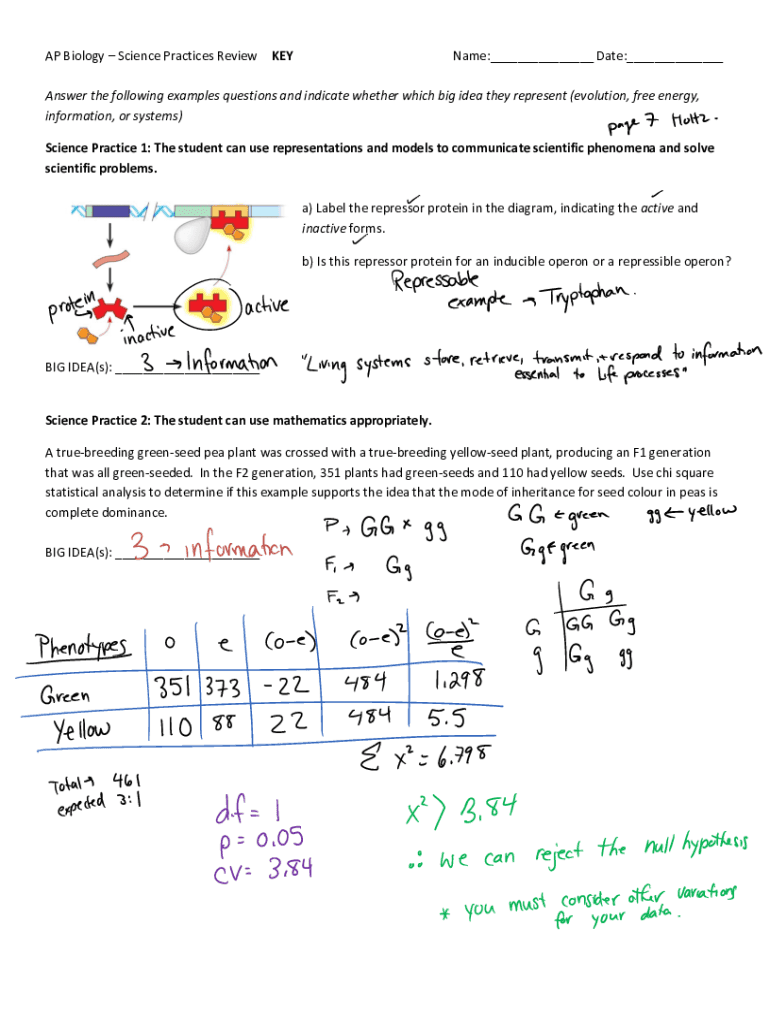 AP Biology – Science Practices Review KEY Name:_______________ Date:______________
Answer the following examples questions and indicate whether which big idea they represent (evolution, free energy,
information, or systems)
page 7 Holtz.
Science Practice 1: The student can use representations and models to communicate scientific phenomena and solve
scientific problems.
a) Label the repressor protein in the diagram, indicating the active and
inactive forms.
b) Is this repressor protein for an inducible operon or a repressible operon?
Repressable
example → Tryptophan.
protein
active
inactive
BIG IDEA(s): 3 → Information
"Living systems store, retrieve, transmit, + respond to information
essential to Life processes"
Science Practice 2: The student can use mathematics appropriately.
A true-breeding green-seed pea plant was crossed with a true-breeding yellow-seed plant, producing an F1 generation
that was all green-seeded. In the F2 generation, 351 plants had green-seeds and 110 had yellow seeds. Use chi square
statistical analysis to determine if this example supports the idea that the mode of inheritance for seed colour in peas is
complete dominance.
P → GG × gg
GG ← green gg ← yellow
BIG IDEA(s): 3 → information
F₁ → Gg
Gg ← green
F₂ →
G g
G GG Gg
g Gg gg
Phenotypes o e (o-e) (o-e)² (o-e)²/e
Green 351 373 -22 484 1.298
Yellow 110 88 22 484 5.5
Σ x² = 6.798
Total → 461
expected 3:1
d.f = 1
p = 0.05
CV = 3.84
x² > 3.84
∴ We can reject the null hypothesis
* you must consider other variations
for your data.